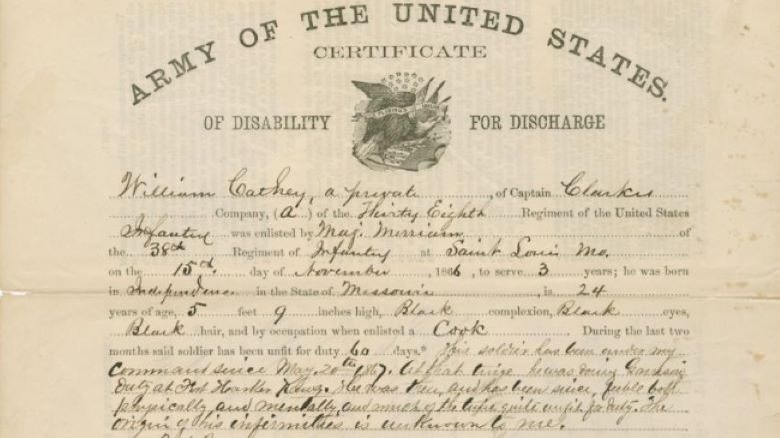 ARMY OF THE UNITED STATES.
CERTIFICATE
OF DISABILITY FOR DISCHARGE
William Cathey, a private, of Captain Clarkes
Company, (A) of the Thirty Eighth Regiment of the United States
Infantry was enlisted by Maj. Merriam of
the 38th Regiment of Infantry at Saint Louis Mo.
on the 15th day of November, 1866, to serve 3 years; he was born
in Independence in the State of Missouri, is 24
years of age, 5 feet 9 inches high, Black complexion, Black eyes,
Black hair, and by occupation when enlisted a Cook. During the last two
months said soldier has been unfit for duty 60 days.* This soldier has been under my
command since May 20th 1867. At that time he was doing Garrison
duty at Fort Harker He was then, and has been since, feeble both
physically and mentally, and much of the time quite unfit for duty. The
origin of his infirmities is unknown to me.